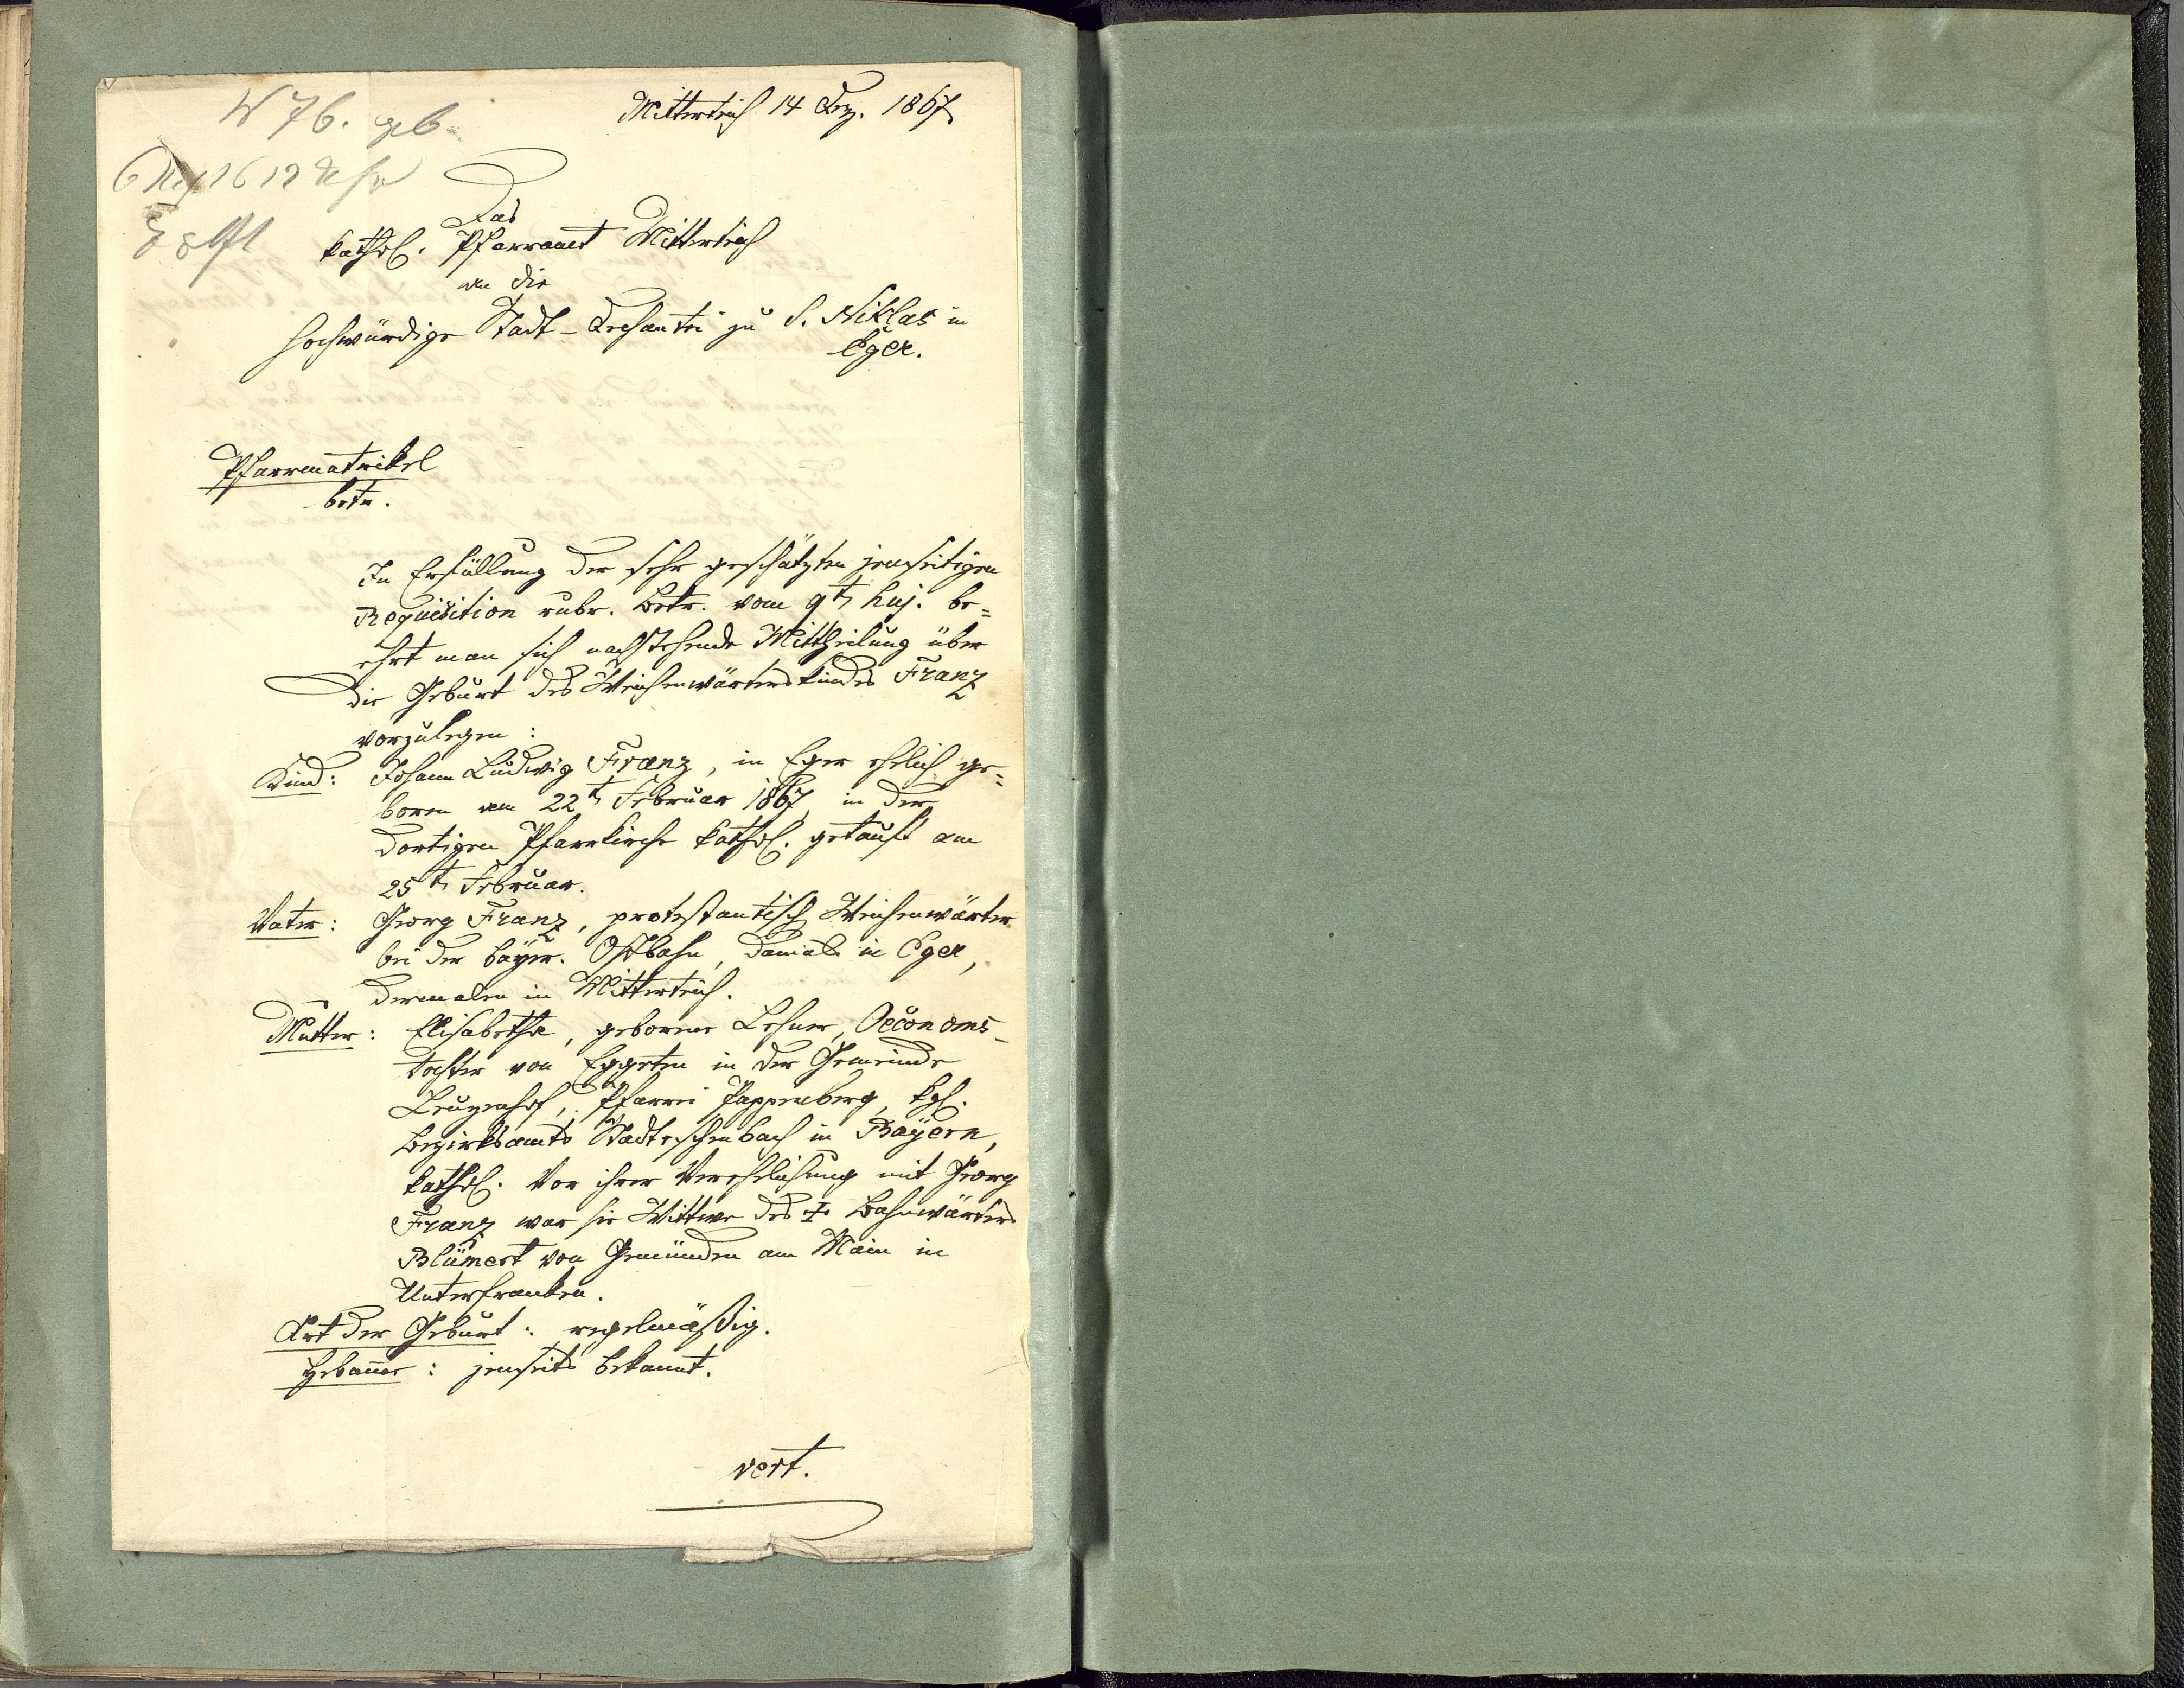 Mitterteich 14 Dez. 1867
N 76. geb
Das
kathol. Pfarramt Mitterteich
an die
hochwürdige Stadt-Dechantei zu S. Niklas in
Eger.
Pfarrmatrikel
betr.
In Erfüllung der sehr geschätzten jenseitigen
Requisition rubr. Betr. vom 9t huj. be=
ehrt man sich nachstehende Mittheilung über
die Geburt des Weichenwärterskindes Franz
vorzulegen:
Kind: Johann Ludwig Franz, in Eger ehelich ge=
boren am 22t Februar 1867, in der
dortigen Pfarrkirche kathol. getauft am
25t Februar.
Vater: Georg Franz, protestantisch, Weichenwärter
bei der bayer. Ostbahn, damals in Eger,
dermalen in Mitterteich.
Mutter: Elisabetha, geborene Lehner, Oeconoms-
tochter von Eggeten in der Gemeinde
Leuzenhof, Pfarrei Pappenberg, kgl.
Bezirksamts Stadteschenbach in Bayern,
kathol. Vor ihrer Verehelichung mit Georg
Franz war sie Wittwe des † Bahnwärters
Blümert von Gemünden am Main in
Unterfranken.
Art der Geburt: regelmäßig.
Hebamme: jenseits bekannt.
vert.